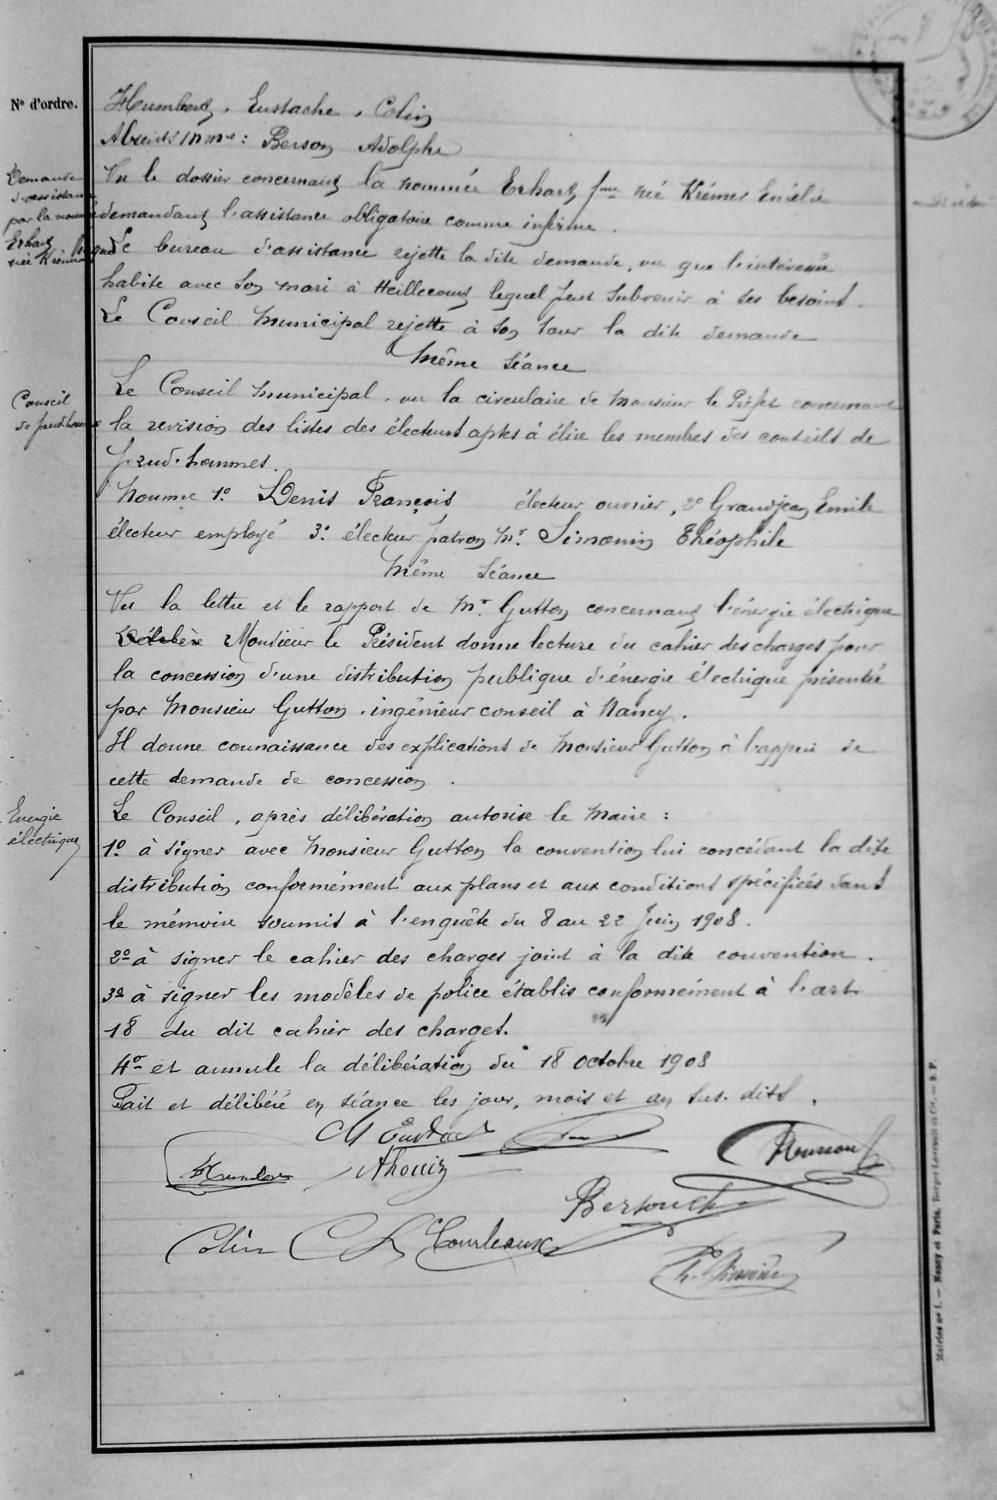 N° d'ordre.
Humbert, Eustache, Colin
Absents MMrs : Berson Adolphe
Demande
d'assistance
par la nommée
Erhart
née Krémer
Vu le dossier concernant la nommée Erhart fme née Krémer Emélie
demandant l'assistance obligatoire comme infirme.
Le bureau d'assistance rejette la dite demande, vu que l'intéressée
habite avec son mari à Heillecourt lequel peut subvenir à ses besoins.
Le Conseil Municipal rejette à son tour la dite demande
Même séance
Conseil
de prud'hommes
Le Conseil Municipal, vu la circulaire de Monsieur le Préfet concernant
la revision des listes des électeurs aptes à élire les membres des conseils de
prud'hommes.
Nomme 1° Denis François électeur ouvrier, 2° Grandjean Emile
électeur employé 3° électeur patron Mr Simonin Théophile
Même séance
Vu la lettre et le rapport de Mr Gutton concernant l'énergie électrique
Monsieur le Président donne lecture du cahier des charges pour
la concession d'une distribution publique d'énergie électrique présentée
par Monsieur Gutton, ingénieur conseil à Nancy.
Il donne connaissance des explications de Monsieur Gutton à l'appui de
cette demande de concession.
Energie
électrique
Le Conseil, après délibération autorise le Maire :
1° à signer avec Monsieur Gutton la convention lui concédant la dite
distribution conformément aux plans et aux conditions spécifiées dans
le mémoire soumis à l'enquête du 8 au 22 Juin 1908.
2° à signer le cahier des charges joint à la dite convention.
3° à signer les modèles de police établis conformément à l'art.
18 du dit cahier des charges.
4° et annule la délibération du 18 Octobre 1908
Fait et délibéré en séance les jour, mois et an sus-dits.
M Eustache
Humbert
Thouin
Colin
Courteaux
Mairies n° 1. — Nancy et Paris, Berger-Levrault et Cie. — 9. P.